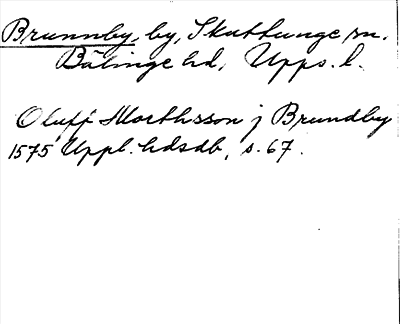 Brunnby, by, Skuttunge sn.
Bälinge hd, Upps. l.
Oluff Morthsson j Brundby
1575 Uppl. hdsdb, s. 67.